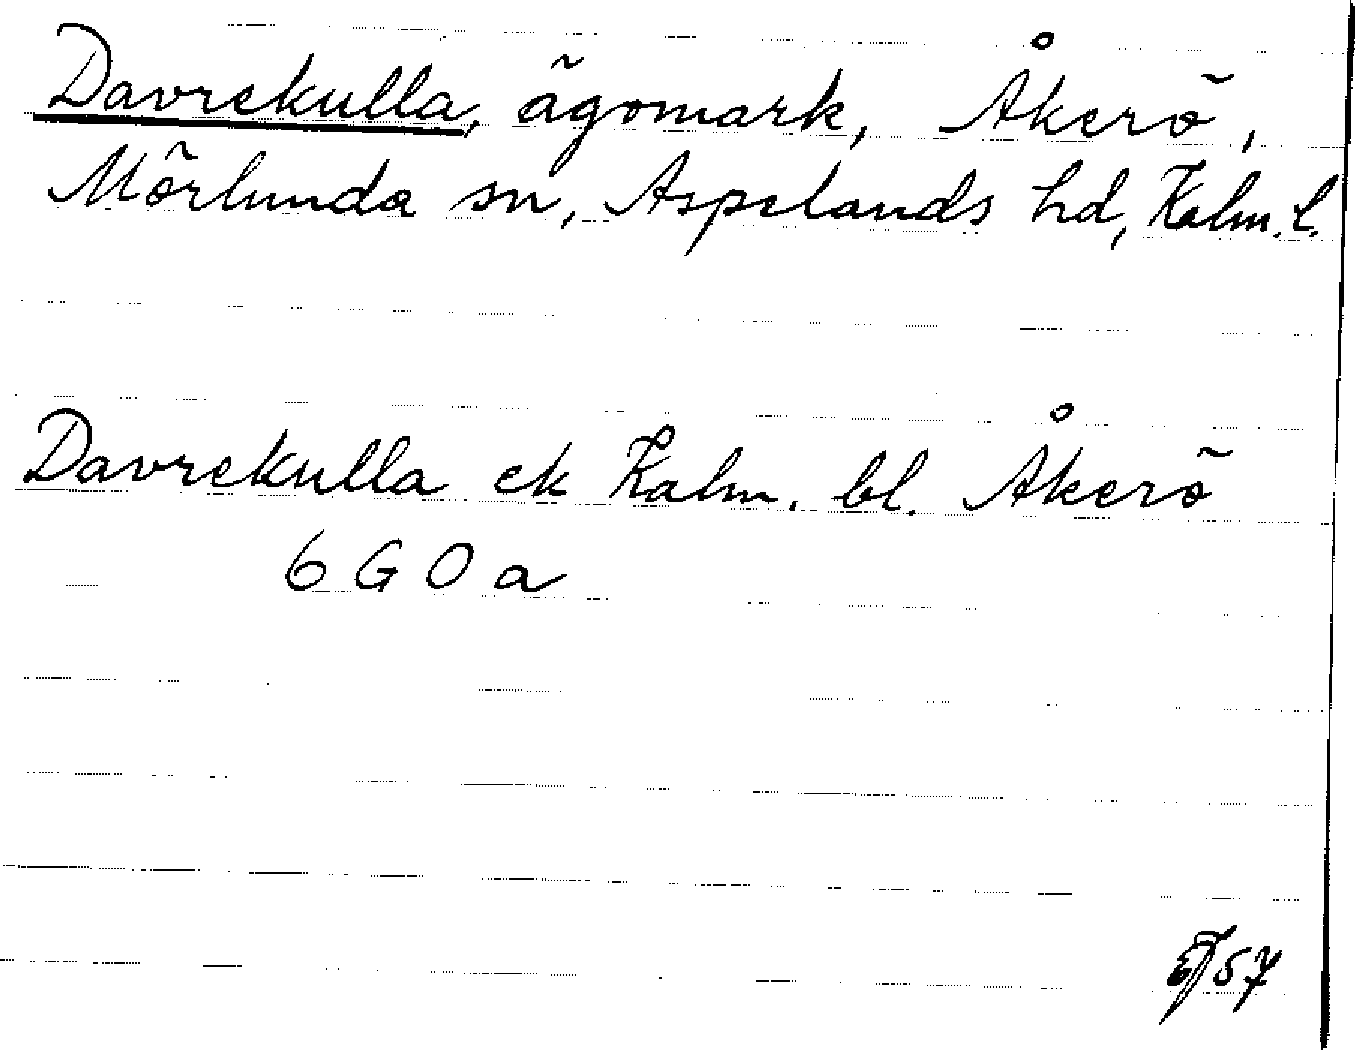 Davrekulla, ägomark, Åkerö,
Mörlunda sn, Aspelands hd, Kalm. l.
Davrekulla ek Kalm. bl. Åkerö
6 G 0 a
57